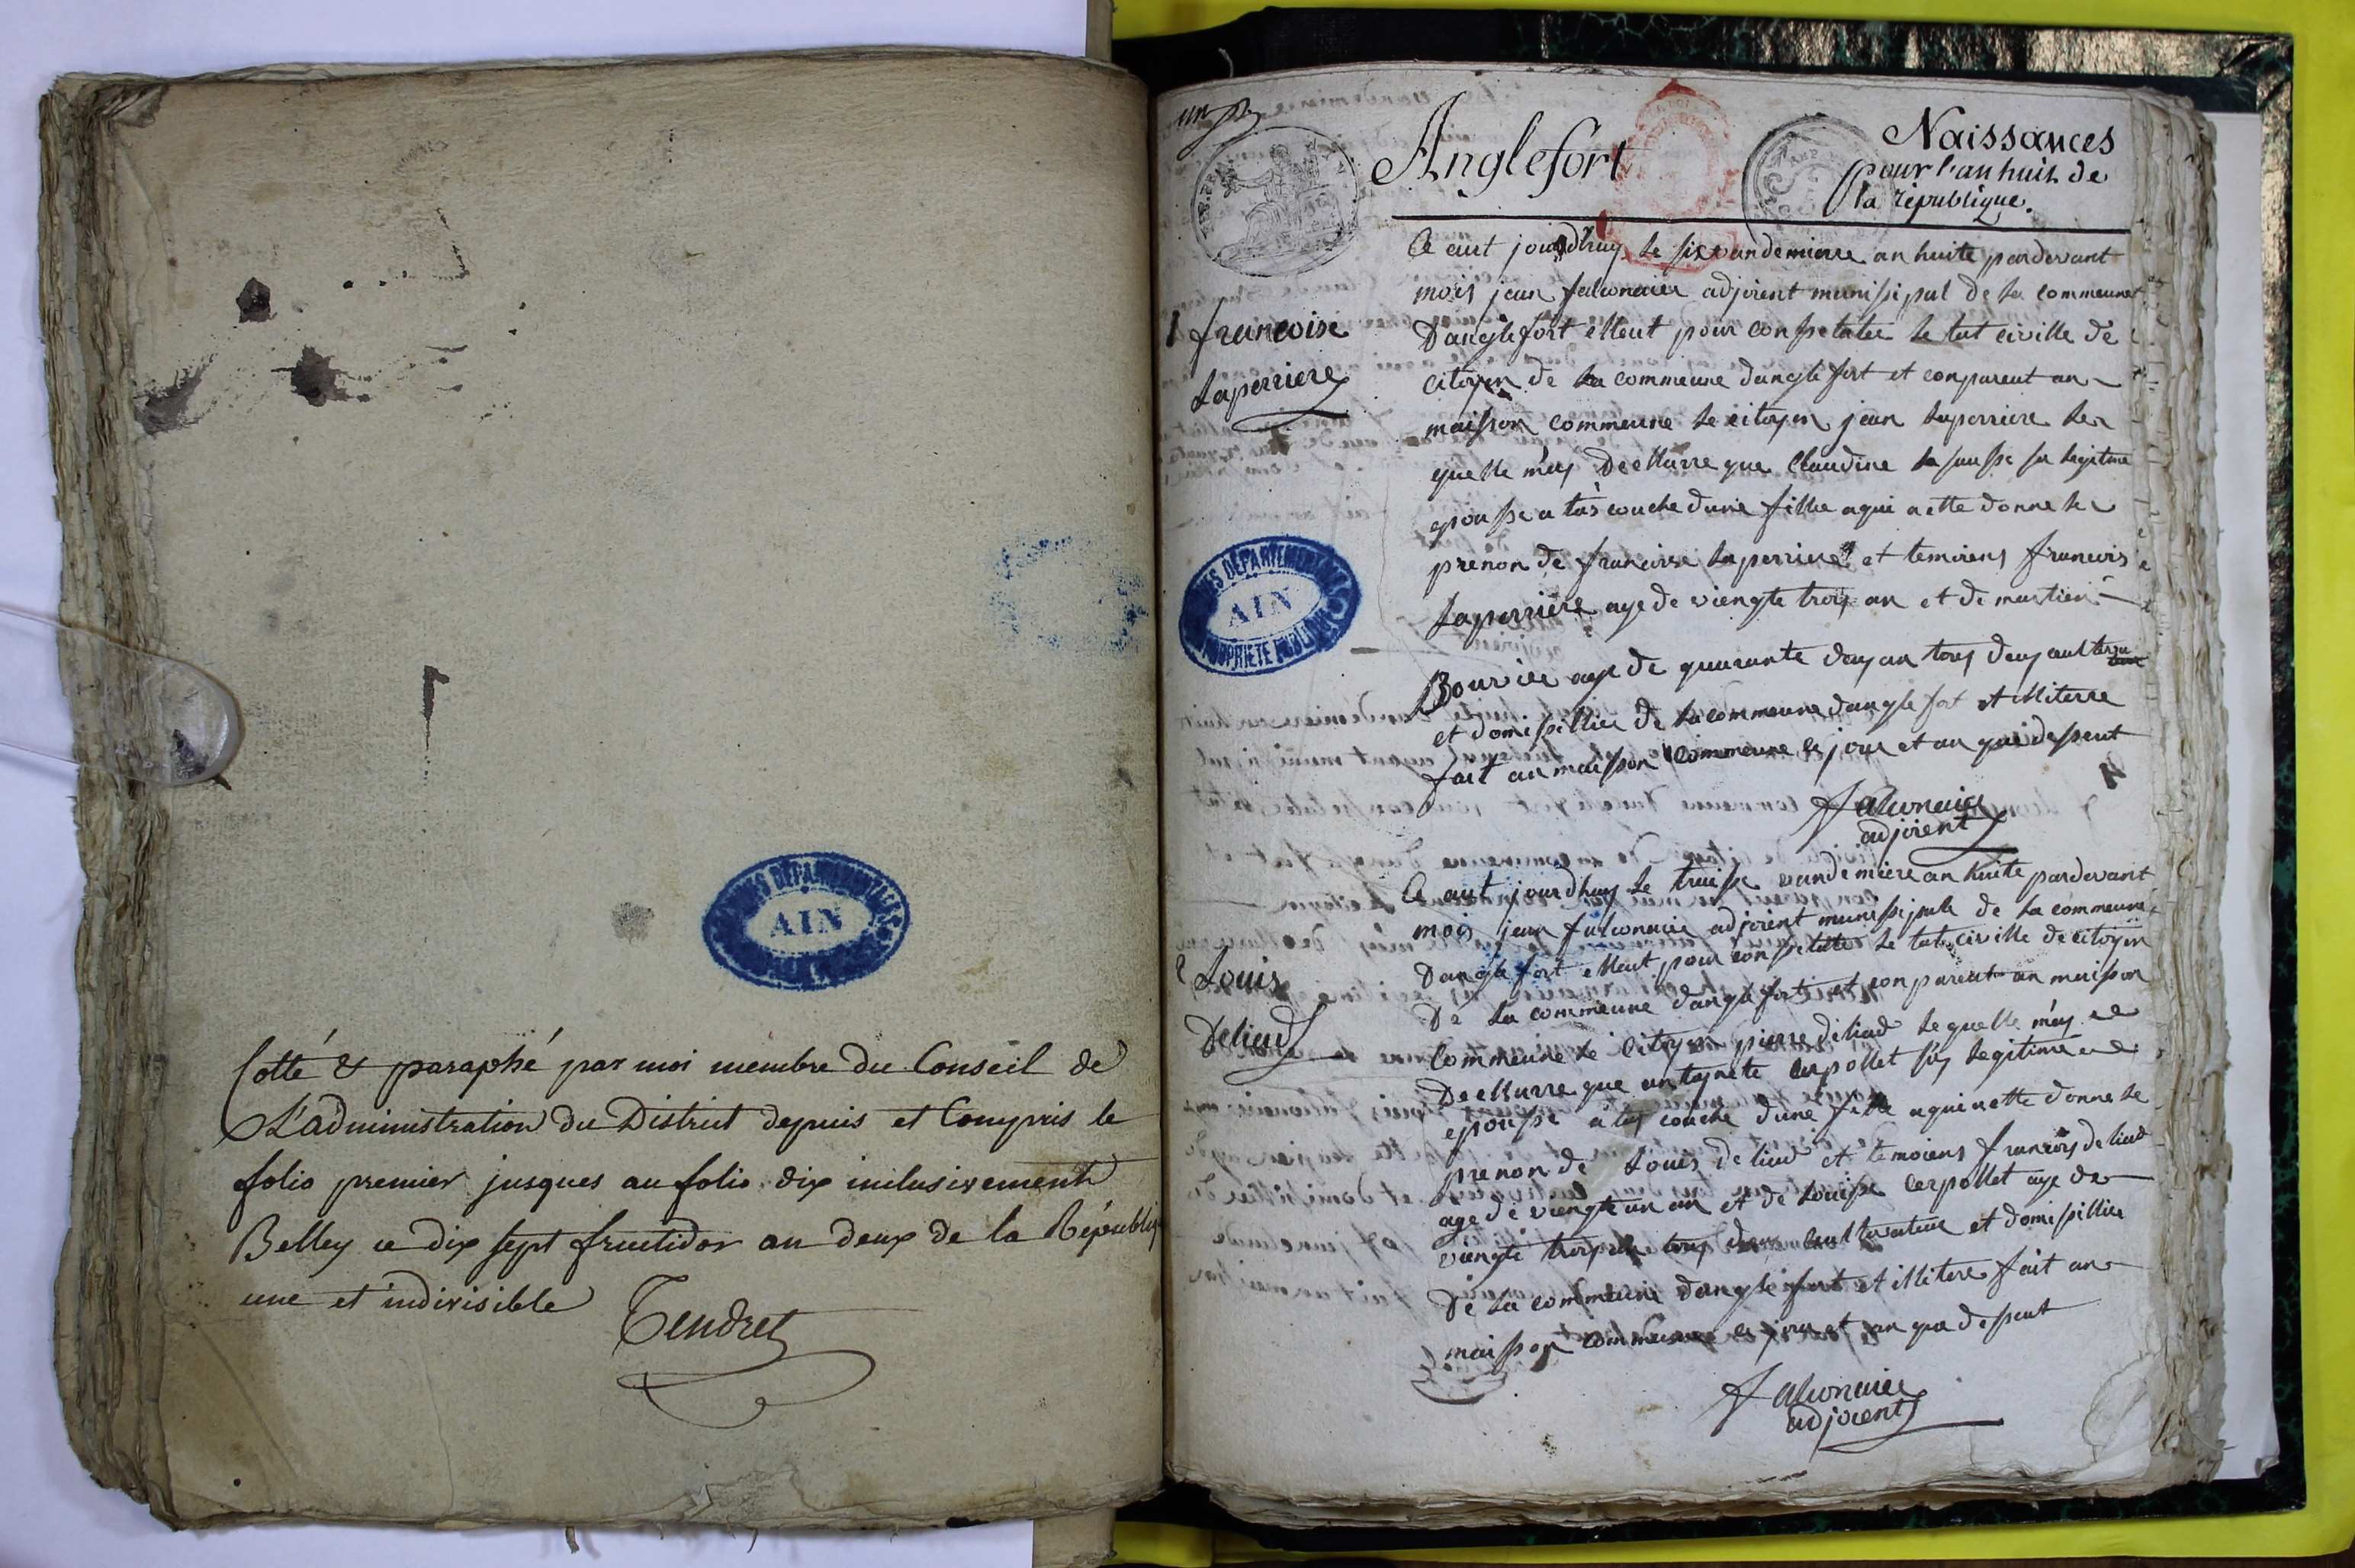 Cotté & paraphé par moi membre du Conseil de
L'administration du District depuis et Compris le
folio premier jusques au folio dix inclusivement
Belley ce dix sept fructidor an deux de la Républiq
une et indivisible
Tendret
ARCHIVES DÉPARTEMENTALES
AIN
un
Anglefort
Naissances
pour l'an huit de
la république.
1 francoise
Laperriere
Ce aut jourdhuy le six vandemiere an huite pardevant
mois jean falconnier adjoient munissipal de la commeune
Danglefort elleut pour conpetater le tat civille de
citoyen de la commeune danglefort et conpareut an
maisson commeune le citoyen jean laperriere le
quelle m'ay Decllarre que Claudine la sausse sa legitime
epousse a tas couche dune fille aqui a ette donne le
prenon de francoise laperriere et temoiens francois
Laperriere age de viengte troy an et de martien
Bouvier age de quarante deuy an tous deuy
et domissillier de la commeune danglefort et illiterre
fait an maisson commeune le jour et an qui dessent
falconnier
adjoient
AIN
PROPRIETE PUBLIQUE
Ce aut jourdhuy le traisse vandemiere an huite pardevant
mois jean falconnier adjoient munissipale de la commeune
2 Louis
Deliud
Danglefort elleut pour conpetatter le tat civille de citoyen
De la commeune danglefort et conpareut an maisson
Commeune le citoyen pierre deliud le quelle m'ay
Decllarre que antoynete cerpollet say legitime
epousse a tay couche dune fille aqui a ette donne le
prenon de Louis deliud et temoiens francois deliud
age de viengte un an et de Louisse cerpollet age de
viengte troy an tous deux cultivateur et domissillier
De la commeune danglefort et illitere fait an
maisson commeune le jour et an que dessent
falconnier
adjoient